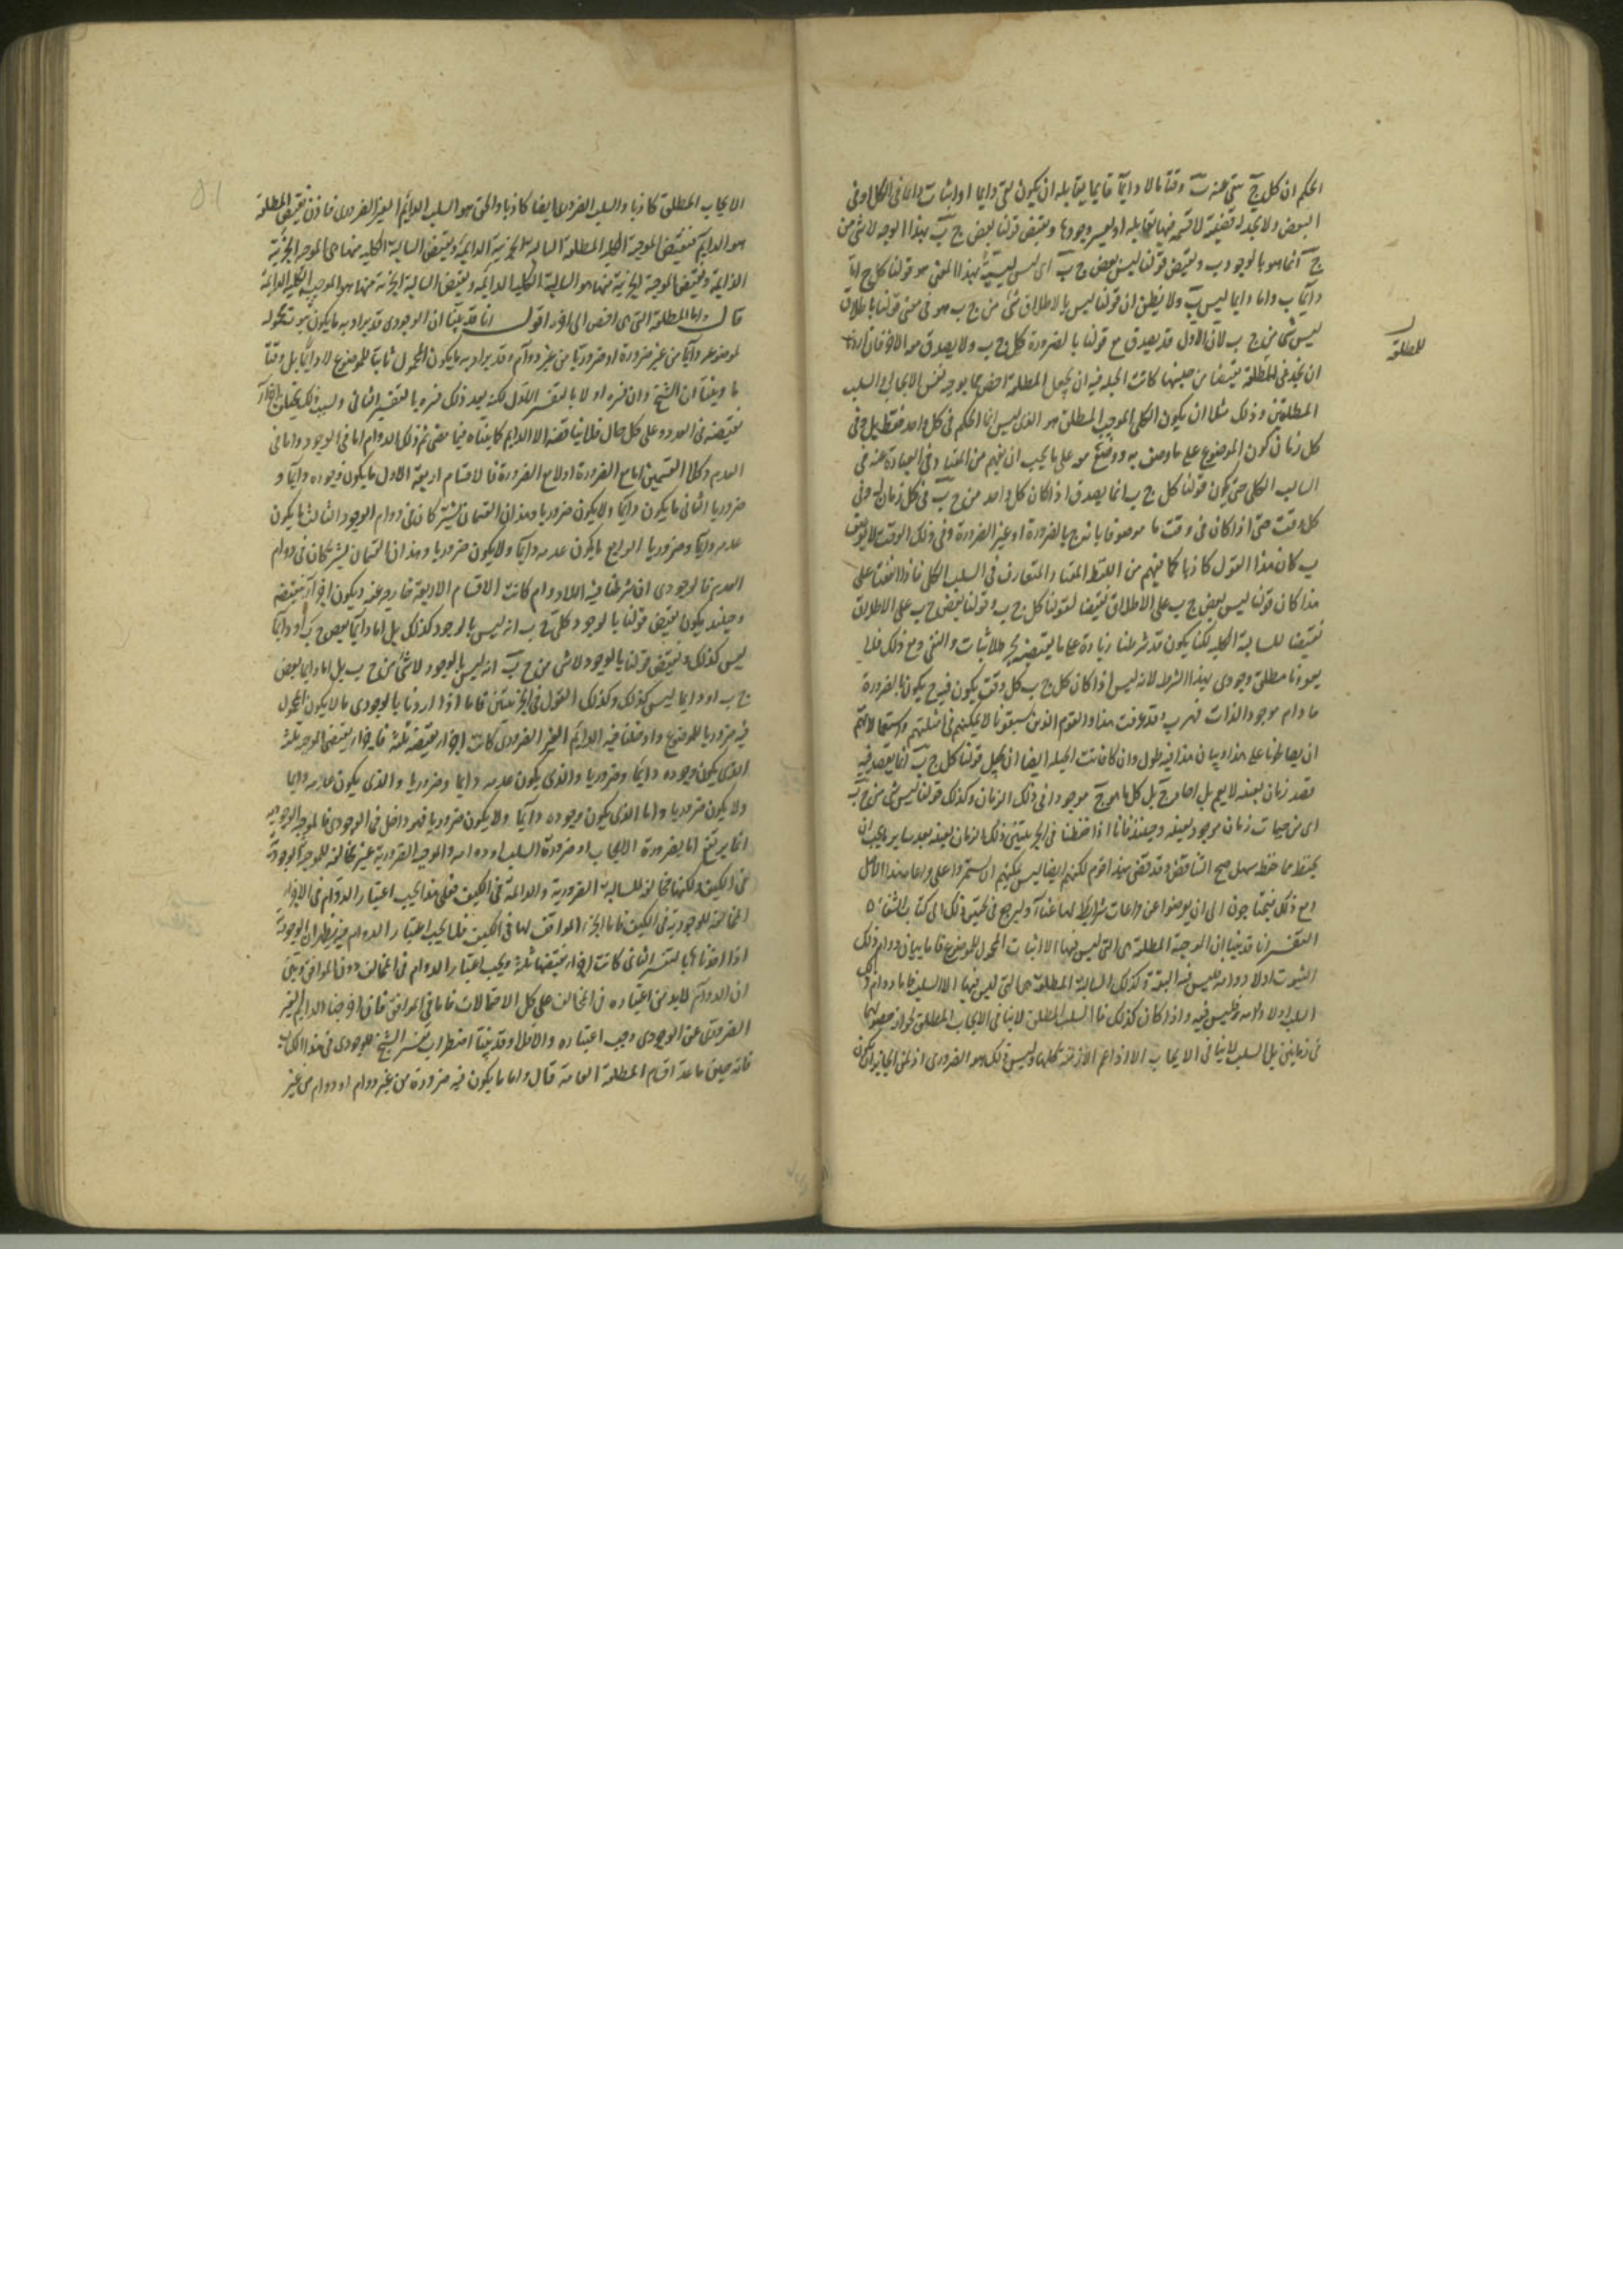 الحكم ان كل ج ينتفى عنه ب وقتا ما لا دايما فانما يقابله ان يكون نفى دايما او اثبات دايما فى الكل او فى
البعض ولا تجد له قضية لا قسمة فيها تقابله او يعسر وجودها ونقيض قولنا بعض ج ب بهذا الوجه لا شى من
ج انما هو بالوجود ب ونقيض قولنا ليس بعض ج ب اى ليسية بهذا المعنى هو قولنا كل ج اما
دايما ب واما دايما ليس ب ولا يظن ان قولنا ليس بالاطلاق شى من ج ب هو فى معنى قولنا بالاطلاق
ليس شى من ج ب لان الاول قد يصدق مع قولنا بالضرورة كل ج ب ولا يصدق معه الاخر فان اردنا
ان نجد فى للمطلقة نقيضا من جنسها كانت الحيلة فيه ان نجعل المطلقة اخص مما يوجبه نفس الايجاب والسلب
للمطلقة
المطلقين وذلك مثلا ان يكون الكلى الموجب المطلق هو الذى ليس انما الحكم فى كل واحد فقط بل وفى
كل زمان كون الموضوع على ما وصف به ووضع معه على ما يجب ان يفهم من المعتاد فى العبارة عنه فى
السالب الكلى حتى يكون قولنا كل ج ب انما يصدق اذا كان كل واحد من ج ب فى كل زمان له وفى
كل وقت حتى اذا كان فى وقت ما موصوفا بانه ج بالضرورة او غير الضرورة وفى ذلك الوقت لا يوصف
ب كان هذا القول كاذبا كما يفهم من اللفظ المعتاد المتعارف فى السلب الكلى فاذا اتفقنا على
هذا كان قولنا ليس بعض ج ب على الاطلاق نقيضا لقولنا كل ج ب وقولنا بعض ج ب على الاطلاق
نقيضا للسالبة الكلية لكنا يكون قد شرطنا زيادة على ما يقتضيه مجرد الاثبات والنفى ومع ذلك فلا
يعوزنا مطلق وجودى بهذا الشرط لانه ليس اذا كان كل ج ب كل وقت يكون فيه ج يكون بالضرورة
ما دام موجود الذات فهو ب وقد عرفت هذا والقوم الذين سبقونا لا يمكنهم فى امثلتهم واستعمالاتهم
ان يصالحونا على هذا وبيان هذا فيه طول وان كانت الحيلة ايضا ان نجعل قولنا كل ج ب انما يقصد فيه
قصد زمان بعينه لا يعم بل احاد ج بل كل ما هو ج موجودا فى ذلك الزمان وكذلك قولنا ليس شى من ج ب
اى من جيمات زمان موجود بعينه وحينئذ فانا اذا حفظنا فى الجزئيتين ذلك الزمان بعينه بعد ساير ما يجب ان
يحفظ مما حفظه سهل صح التناقض وقد قضى بهذا قوم لكنهم ايضا ليس يمكنهم ان يستمروا على مراعاة هذا الاصل
ومع ذلك فيحتاجون الى ان يعرضوا عن مراعات شرايط لها غناء وليرجع فى تحقيق ذلك الى كتاب الشفاء ٥
التفسير انا قد بينا ان الموجبة المطلقة هى التى ليس فيها الا اثبات المحمول للموضوع فاما بيان دوام ذلك
الثبوت او لا دوامه فليس فيه البتة وكذلك السالبة المطلقة هى التى ليس فيها الا السلب فاما دوام ذلك
السلب ولا دوامه فليس فيه واذا كان كذلك فالسلب المطلق لا ينافى الايجاب المطلق لجواز حصولهما
فى زمانين بل السلب لا ينافى الايجاب الا اذا عم الازمنة كلها وليس ذلك هو الضرورى اذ من الجايز ان يكون
الايجاب المطلق كاذبا والسلب الضرورى ايضا كاذبا والحق هو السلب الدايم الغير الضرورى فاذن نقيض المطلقة
هو الدايم فنقيض الموجبة الكلية المطلقة السالبة الجزئية الدايمة ونقيض السالبة الكلية منها هى الموجبة الجزئية
الدايمة ونقيض الموجبة الجزئية منها هو السالبة الكلية الدايمة ونقيض السالبة الجزئية منها هو الموجبة الكلية الدايمة
قال واما المطلقة التى هى اخص الى اخره اقول انا قد بينا ان الوجودى قد يراد به ما يكون ثبوت محموله
لموضوعه دايما من غير ضرورة او ضروريا من غير دوام وقد يراد به ما يكون المحمول ثابتا للموضوع لا دايما بل وقتا
ما وبينا ان الشيخ وان فسره اولا بالتفسير الاول لكنه بعد ذلك فسره بالتفسير الثانى وبسبب ذلك يختلف اجزاء
نقيضه فى العدد وعلى كل حال فلا يناقضه الا الدايم كما بيناه فيما مضى ثم ذلك الدوام اما فى الوجود واما فى
العدم وكلا القسمين اما مع الضرورة او لا مع الضرورة فالاقسام اربعة الاول ما يكون وجوده دايما و
ضروريا الثانى ما يكون دايما ولا يكون ضروريا وهذان القسمان يشتركان فى دوام الوجود الثالث ما يكون
عدمه دايما وضروريا الرابع ما يكون عدمه دايما ولا يكون ضروريا وهذان القسمان يشتركان فى دوام
العدم فالوجودى ان شرطنا فيه اللادوام كانت الاقسام الاربعة خارجة عنه ويكون اجزاء نقيضه
وحينئذ يكون نقيض قولنا بالوجود كل ج ب انه ليس بالوجود كذلك بل اما دايما بعض ج ب او دايما
ليس كذلك ونقيض قولنا بالوجود لا شى من ج ب انه ليس بالوجود لا شى من ج ب بل اما دايما بعض
ج ب او دايما ليس كذلك وكذلك القول فى الجزئيتين فاما اذا اردنا بالوجودى ما لا يكون المحمول
فيه ضروريا للموضوع وادخلنا فيه الدايم الغير الضرورى كانت اجزاء نقيضه ثلثة فاجزاء نقيض الموجبة ثلثة
الذى يكون وجوده دايما وضروريا والذى يكون عدمه دايما وضروريا والذى يكون عدمه دايما
ولا يكون ضروريا واما الذى يكون وجوده دايما ولا يكون ضروريا فهو داخل فى الوجودى فالموجبة الوجودية
انما يرتفع اما بضرورة الايجاب او ضرورة السلب او دوامه والموجبة الضرورية غير مخالفة للموجبة الوجودية
فى الكيف ولكنها مخالفة للسالبة الضرورية والدايمة فى الكيف فعلى هذا يجب اعتبار الدوام فى الاجزاء
المخالفة للوجودية فى الكيف فاما الجزء الموافق لها فى الكيف فلا يجب اعتبار الدوام فيه فظهر ان الوجودية
اذا اخذناها بالتفسير الثانى كانت اجزاء نقيضها ثلثة ويجب اعتبار الدوام فى المخالف دون الموافق وتبين
ان الدوام لا بد من اعتباره فى المخالف على كل الاحتمالات فاما فى الموافق فان اخرجنا الدايم الغير
الضرورى عن الوجودى وجب اعتباره والا فلا وقد بينا اضطراب تفسير الشيخ للوجودى فى هذا الكتاب
فانه حين ما عد اقسام المطلقة العامة قال واما ما يكون فيه ضرورة من غير دوام او دوام من غير